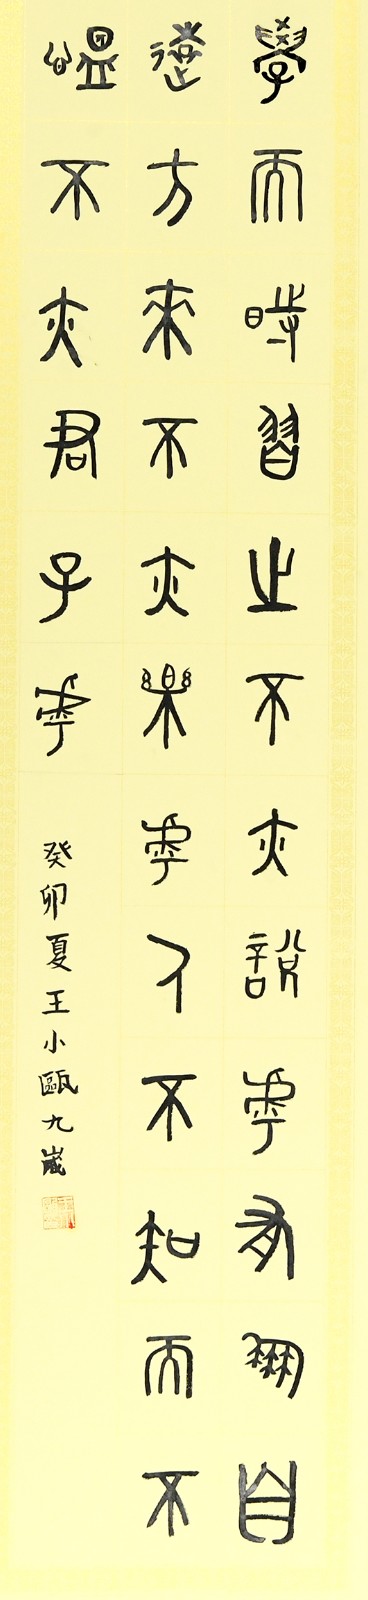 學而時習之不亦說乎有朋自
遠方來不亦樂乎人不知而不
慍不亦君子乎
癸卯夏王小甌九歲